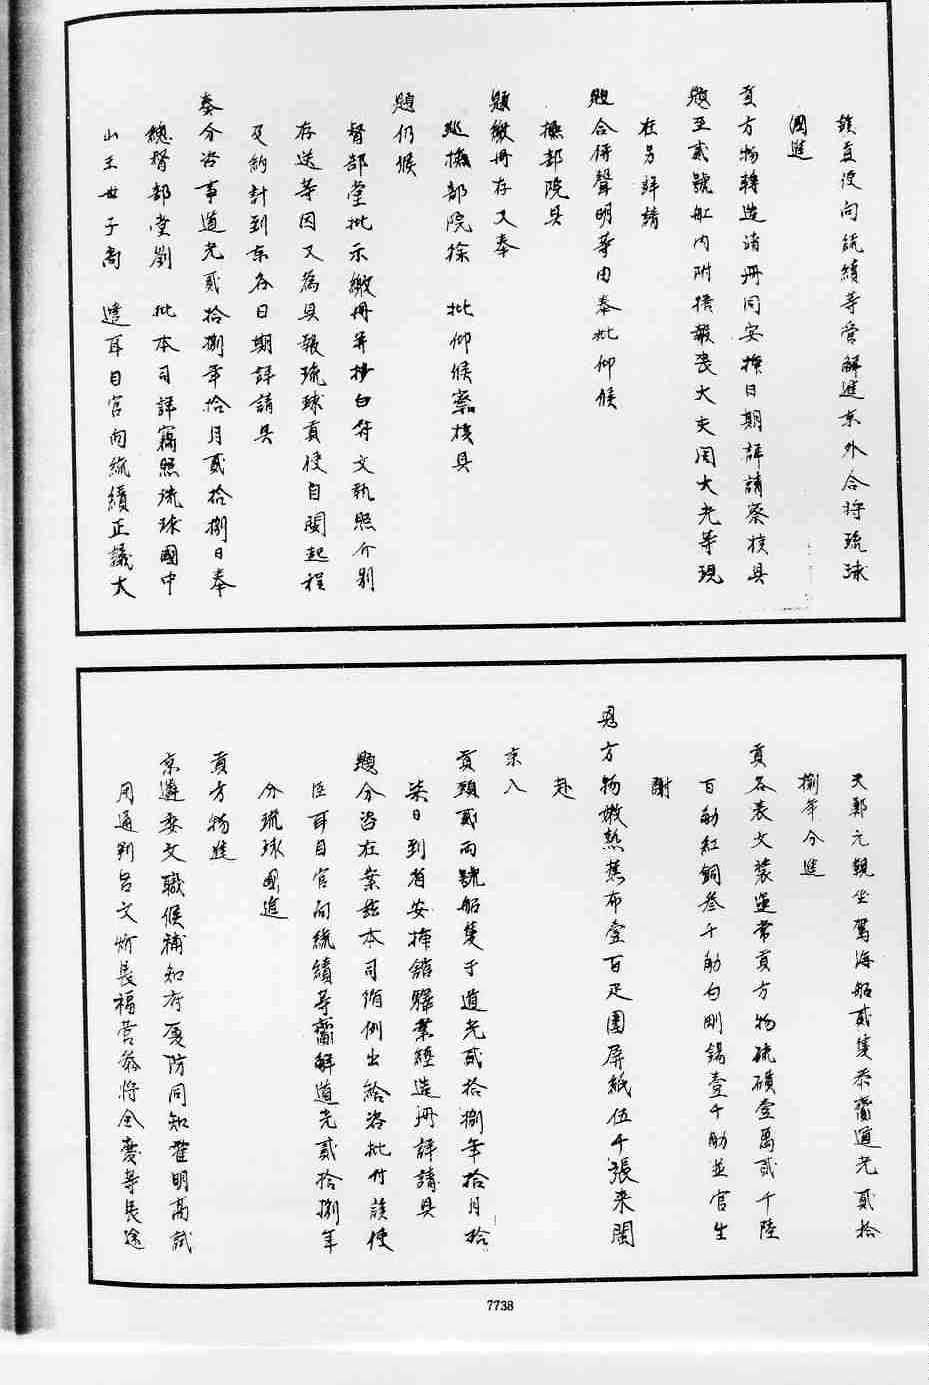 貢使向統績等管解進京外合將琉球
國進
貢方物轉造清冊同安揷日期詳請察核具
題至貳號船內附搭報喪大夫國大光等現
在另詳請
題合倂聲明等由奉批仰候
撫部院具
題繳冊存又奉
巡撫部院徐 批仰候察核具
題仍候
督部堂批示繳冊并抄白符文執照介別
存送等因又為具報琉球貢使自閩起程
及約計到京各日期詳請具
奏分咨事道光貳拾捌年拾月貳拾捌日奉
總督部堂劉 批本司詳竊照琉球國中
山王世子尚 遣耳目官向統績正議大
夫鄭元覲坐駕海船貳隻恭齎道光貳拾
捌年分進
貢各表文裝運常貢方物硫磺壹萬貳千陸
百觔紅銅叁千觔白剛錫壹千觔並官生
謝
恩方物嫩熟蕉布壹百疋圍屏紙伍千張來閩
赴
京入
貢頭貳兩號船隻于道光貳拾捌年拾月拾
柒日到省安揷館驛業經造冊詳請具
題分咨在案茲本司循例出給咨批付該使
臣耳目官向統績等齎解道光貳拾捌年
分琉球國進
貢方物進
京遴委文職候補知府廈防同知霍明高試
用通判呂文炘長福營參將全慶等長途
7738